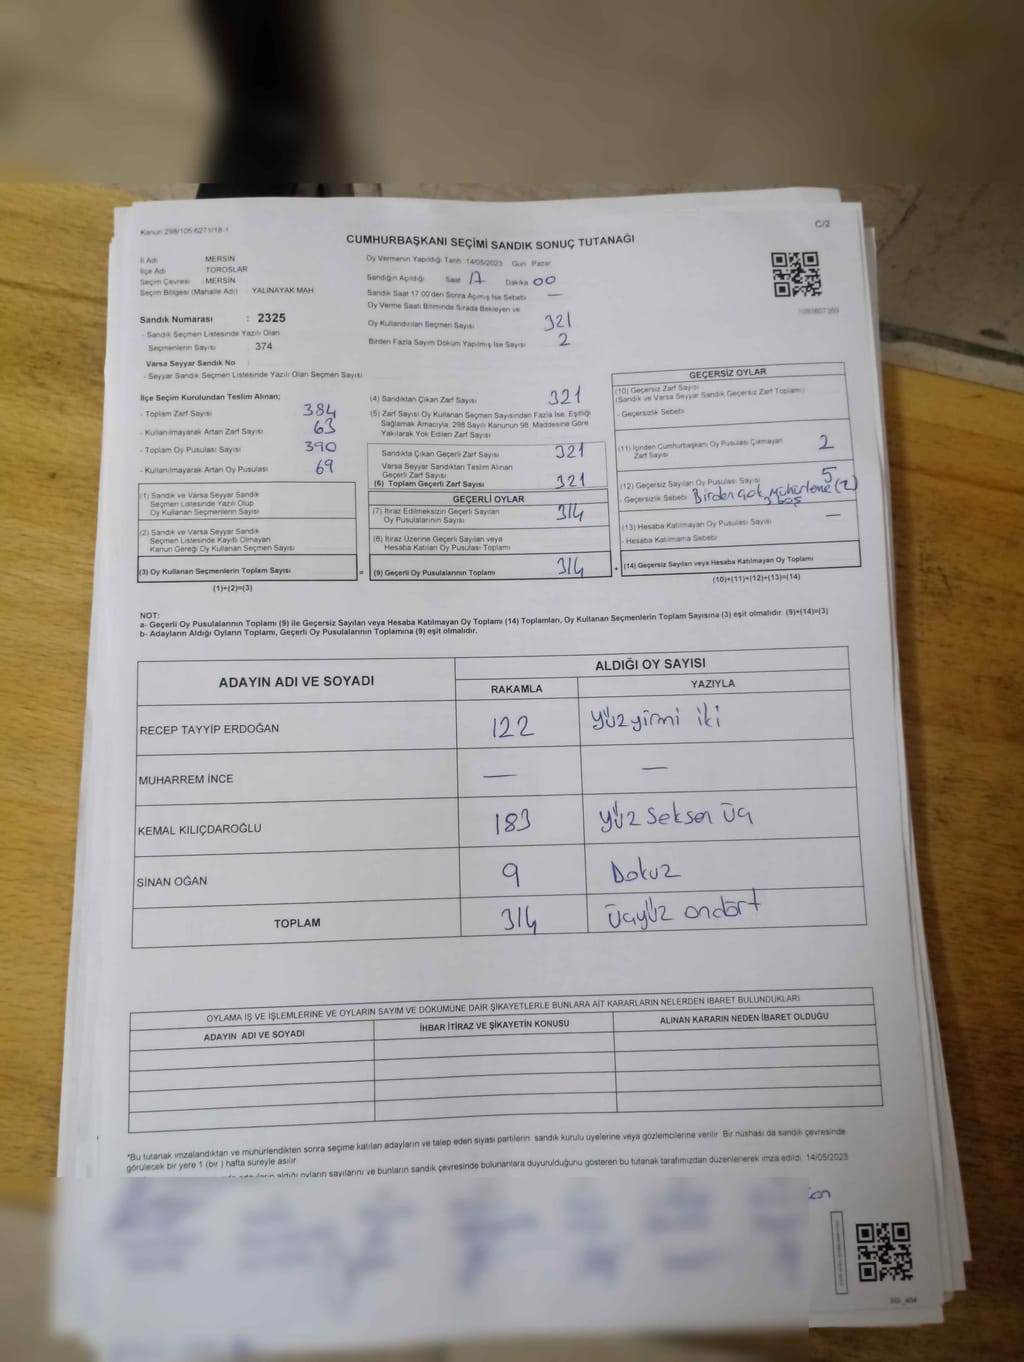 Kanun 298/105 6271/18-1
C/2
CUMHURBAŞKANI SEÇİMİ SANDIK SONUÇ TUTANAĞI
İl Adı : MERSİN
İlçe Adı : TOROSLAR
Seçim Çevresi : MERSİN
Seçim Bölgesi (Mahalle Adı) : YALINAYAK MAH
Sandık Numarası : 2325
- Sandık Seçmen Listesinde Yazılı Olan
Seçmenlerin Sayısı : 374
Varsa Seyyar Sandık No :
- Seyyar Sandık Seçmen Listesinde Yazılı Olan Seçmen Sayısı
Oy Vermenin Yapıldığı Tarih :14/05/2023 Gün Pazar
Sandığın Açıldığı Saat 17 Dakika 00
Sandık Saat 17:00'den Sonra Açımış İse Sebebi —
Oy Verme Saati Bitiminde Sırada Bekleyen ve
Oy Kullandırılan Seçmen Sayısı 321
Birden Fazla Sayım Döküm Yapılmış İse Sayısı 2
İlçe Seçim Kurulundan Teslim Alınan;
- Toplam Zarf Sayısı 384
- Kullanılmayarak Artan Zarf Sayısı 63
- Toplam Oy Pusulası Sayısı 390
- Kullanılmayarak Artan Oy Pusulası 69
(1) Sandık ve Varsa Seyyar Sandık
Seçmen Listesinde Yazılı Olup
Oy Kullanan Seçmenlerin Sayısı
(2) Sandık ve Varsa Seyyar Sandık
Seçmen Listesinde Kayıtlı Olmayan
Kanun Gereği Oy Kullanan Seçmen Sayısı
(3) Oy Kullanan Seçmenlerin Toplam Sayısı =
(1)+(2)=(3)
(4) Sandıktan Çıkan Zarf Sayısı 321
(5) Zarf Sayısı Oy Kullanan Seçmen Sayısından Fazla İse, Eşitliği
Sağlamak Amacıyla; 298 Sayılı Kanunun 98. Maddesine Göre
Yakılarak Yok Edilen Zarf Sayısı
Sandıkta Çıkan Geçerli Zarf Sayısı 321
Varsa Seyyar Sandıktan Teslim Alınan
Geçerli Zarf Sayısı
(6) Toplam Geçerli Zarf Sayısı 321
GEÇERLİ OYLAR
(7) İtiraz Edilmeksizin Geçerli Sayılan
Oy Pusulalarının Sayısı 314
(8) İtiraz Üzerine Geçerli Sayılan veya
Hesaba Katılan Oy Pusulası Toplamı
(9) Geçerli Oy Pusulalarının Toplamı 314 +
GEÇERSİZ OYLAR
(10) Geçersiz Zarf Sayısı
(Sandık ve Varsa Seyyar Sandık Geçersiz Zarf Toplamı)
- Geçersizlik Sebebi
(11) İçinden Cumhurbaşkanı Oy Pusulası Çıkmayan
Zarf Sayısı 2
(12) Geçersiz Sayılan Oy Pusulası Sayısı 5
- Geçersizlik Sebebi Birden çok mühürleme (2)
3 boş
(13) Hesaba Katılmayan Oy Pusulası Sayısı —
Hesaba Katılmama Sebebi
(14) Geçersiz Sayılan veya Hesaba Katılmayan Oy Toplamı
(10)+(11)+(12)+(13)=(14)
NOT:
a- Geçerli Oy Pusulalarının Toplamı (9) ile Geçersiz Sayılan veya Hesaba Katılmayan Oy Toplamı (14) Toplamları, Oy Kullanan Seçmenlerin Toplam Sayısına (3) eşit olmalıdır. (9)+(14)=(3)
b- Adayların Aldığı Oyların Toplamı, Geçerli Oy Pusulalarının Toplamına (9) eşit olmalıdır.
ADAYIN ADI VE SOYADI
ALDIĞI OY SAYISI
RAKAMLA YAZIYLA
RECEP TAYYİP ERDOĞAN 122 Yüzyirmi iki
MUHARREM İNCE — —
KEMAL KILIÇDAROĞLU 183 Yüz seksen üç
SİNAN OĞAN 9 Dokuz
TOPLAM 314 Üçyüz ondört
OYLAMA İŞ VE İŞLEMLERİNE VE OYLARIN SAYIM VE DÖKÜMÜNE DAİR ŞİKAYETLERLE BUNLARA AİT KARARLARIN NELERDEN İBARET BULUNDUKLARI
ADAYIN ADI VE SOYADI İHBAR İTİRAZ VE ŞİKAYETİN KONUSU ALINAN KARARIN NEDEN İBARET OLDUĞU
*Bu tutanak imzalandıktan ve mühürlendikten sonra seçime katılan adayların ve talep eden siyasi partilerin sandık kurulu üyelerine veya gözlemcilerine verilir. Bir nüshası da sandık çevresinde
görülecek bir yere 1 (bir) hafta süreyle asılır.
aldığı oyların sayılarını ve bunların sandık çevresinde bulunanlara duyurulduğunu gösteren bu tutanak tarafımızdan düzenlenerek imza edildi. 14/05/2023